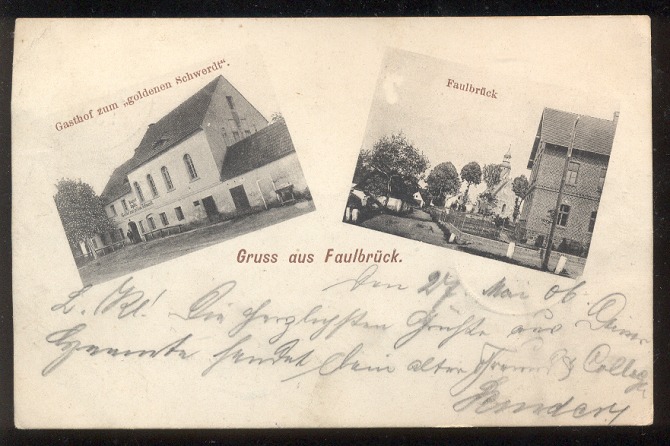 Gasthof zum „goldenen Schwerdt“.
Faulbrück
Gruss aus Faulbrück.
Den 27. Mai 06.
L. Kl! Die herzlichsten Grüße aus Deiner
sendet Dein alter Freund & College